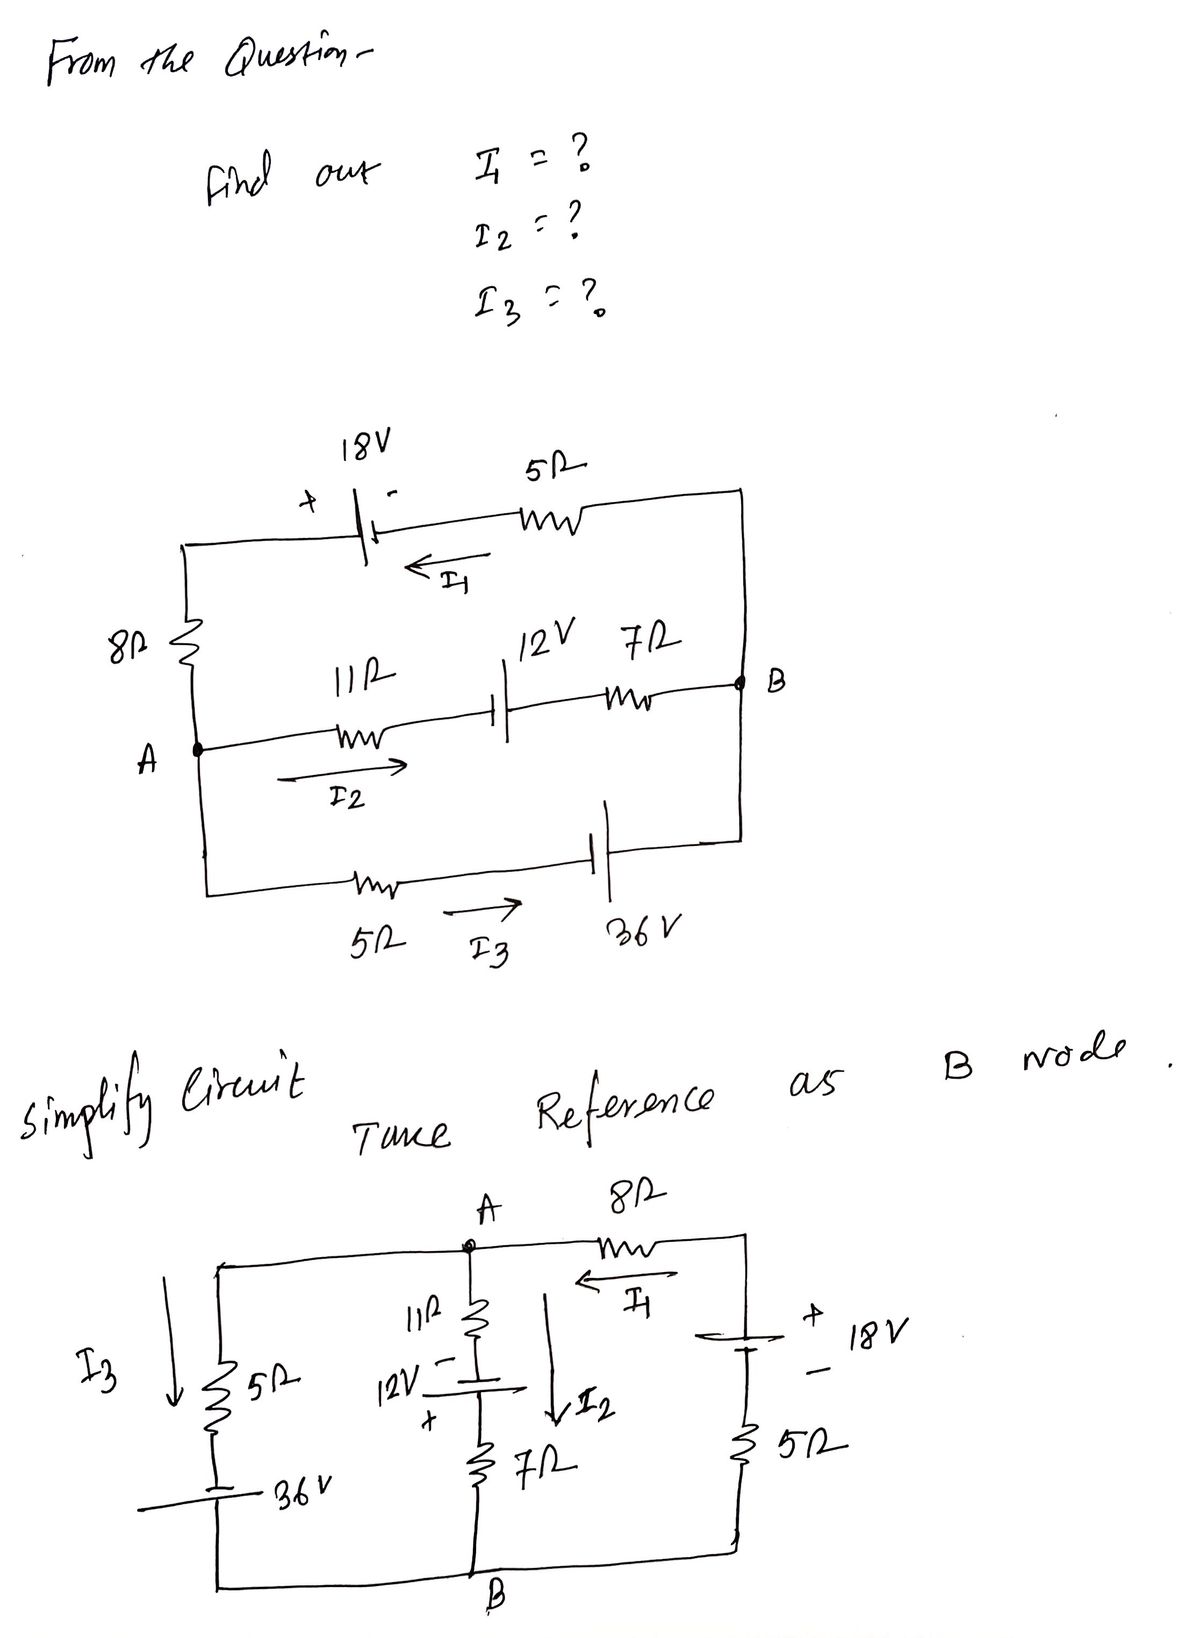 From the Question -
Find out I1 = ?
I2 = ?
I3 = ?
18V
+ -
5Ω
I1
8Ω
12V 7Ω
11Ω
B
A
I2
5Ω I3 36V
Simplify Circuit Take Reference as B node.
A 8Ω
I1
11Ω
+ 18V
-
I3 5Ω
12V -
+
I2
7Ω
5Ω
36V
B